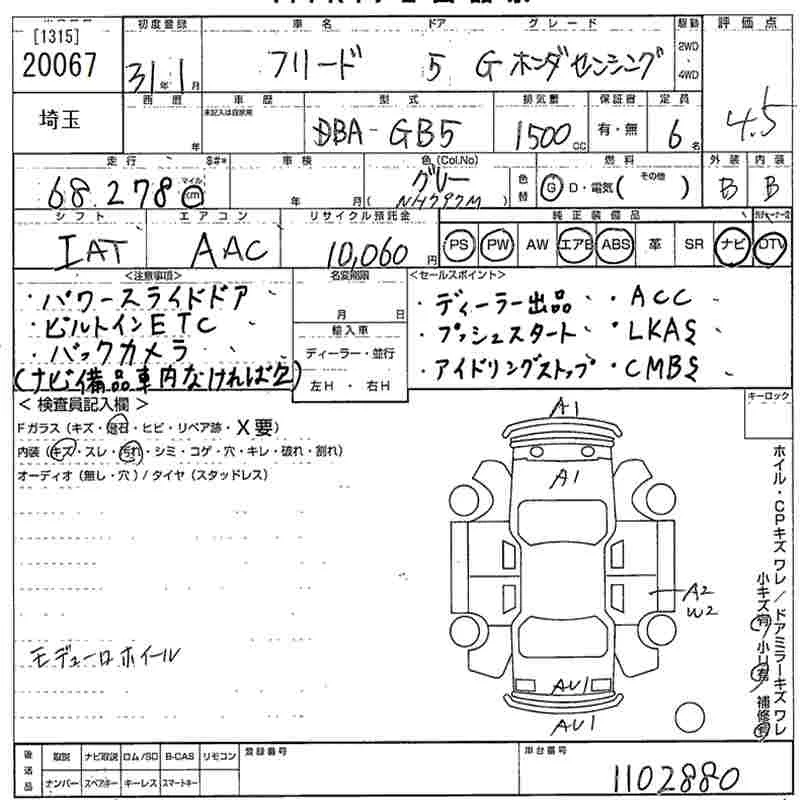 [1315]
20067
初度登録 車名 ドア グレード 駆動 評価点
31年1月 フリード 5 G ホンダセンシング 2WD・4WD
4.5
埼玉
西暦 年 車歴 未記入は自家用 型式 排気量 保証書 定員
DBA-GB5 1500cc 有・無 6名
走行 車検 色(Col.No) 燃料 外装 内装
68,278 マイル km 年 月 グレー 色替 G D・電気( その他 ) B B
(NH797M)
シフト エアコン リサイクル預託金 純正装備品
IAT AAC 10,060円 PS PW AW エアB ABS 革 SR ナビ DTV
<注意事項> 名変期限 <セールスポイント>
・パワースライドドア 月 日 ・ディーラー出品 ・ACC
・ビルトインETC 輸入車 ・プッシュスタート ・LKAS
・バックカメラ ディーラー・並行 ・アイドリングストップ ・CMBS
(ナビ備品車内なければ乙) 左H・右H
<検査員記入欄> キーロック
Fガラス(キズ・磨石・ヒビ・リペア跡・X要)
内装(キズ・スレ・汚れ・シミ・コゲ・穴・キレ・破れ・割れ)
オーディオ(無し・穴)/タイヤ(スタッドレス)
A1
A1
A2
W2
AU1
AU1
モデューロホイール
ホイル・CPキズワレ/ドアミラーキズワレ
小キズ有/小U有 補修有
後送品 取説 ナビ取説 ロム/SD B-CAS リモコン 登録番号 車台番号
ナンバー スペアキー キーレス スマートキー 1102880